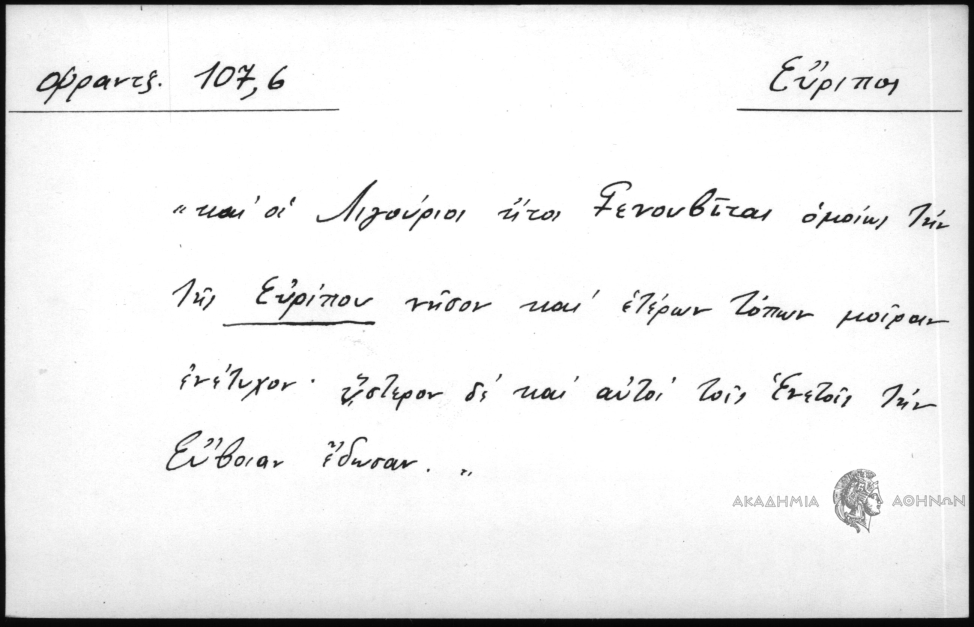 Φραντζ. 107,6
Εὔριπος
"καὶ οἱ Λιγούριοι ἤτοι Γενουβῖται ὁμοίως τὴν
τῆς Εὐρίπου νῆσον καὶ ἑτέρων τόπων μοῖραν
ἐνέτυχον· ὕστερον δὲ καὶ αὐτοὶ τοῖς Ἑνετοῖς τὴν
Εὔβοιαν ἔδωσαν."
ΑΚΑΔΗΜΙΑ ΑΘΗΝΩΝ